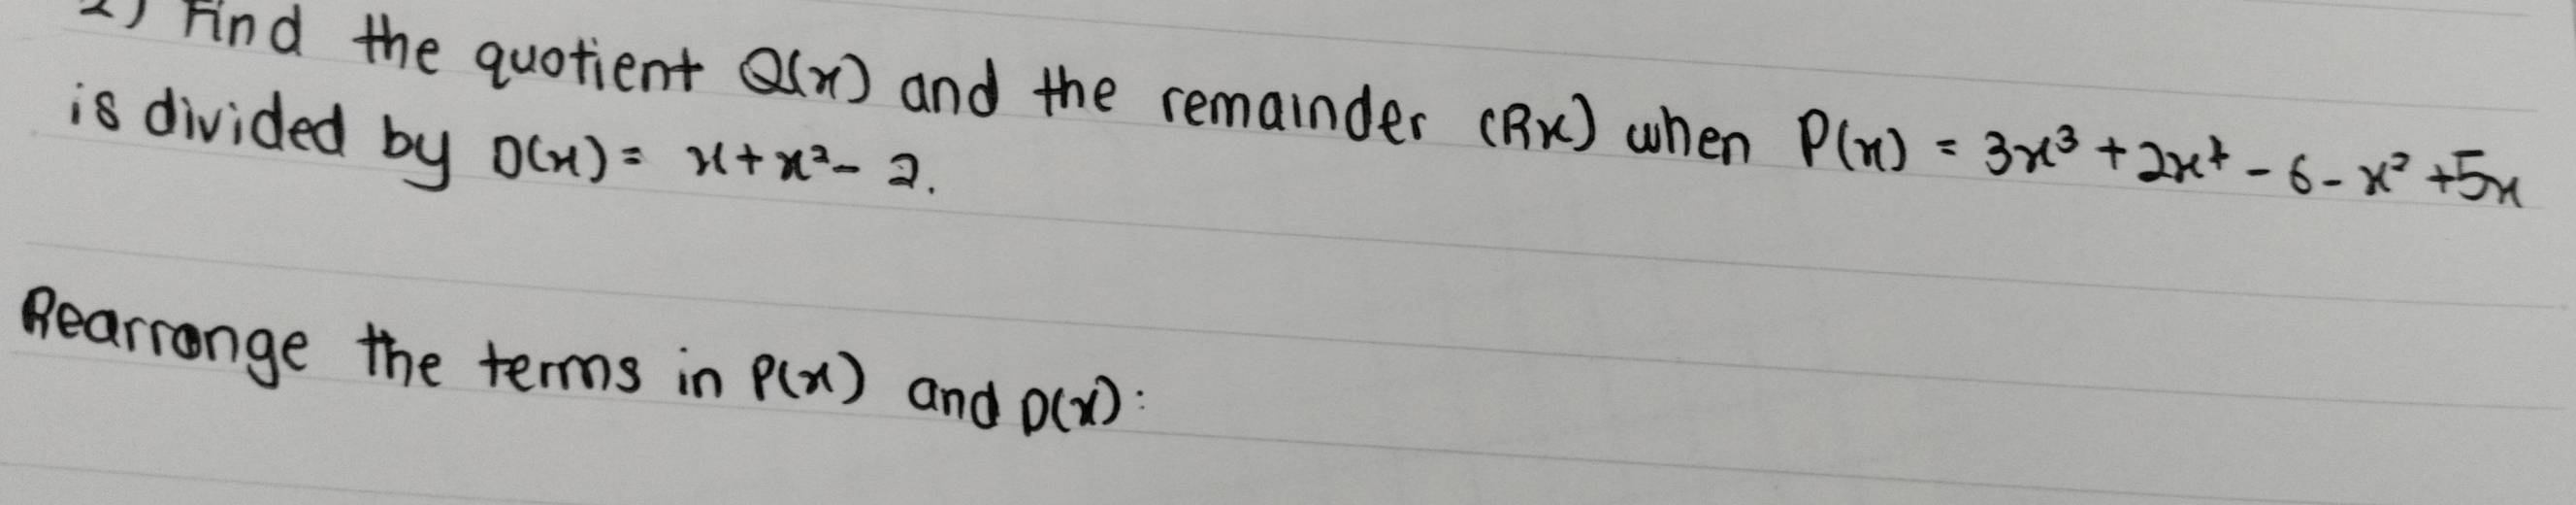 2) Find the quotient Q(x) and the remainder (Rx) when P(x) = 3x³ + 2x⁴ - 6 - x² + 5x
is divided by D(x) = x + x² - 2.
Rearrange the terms in P(x) and D(x):